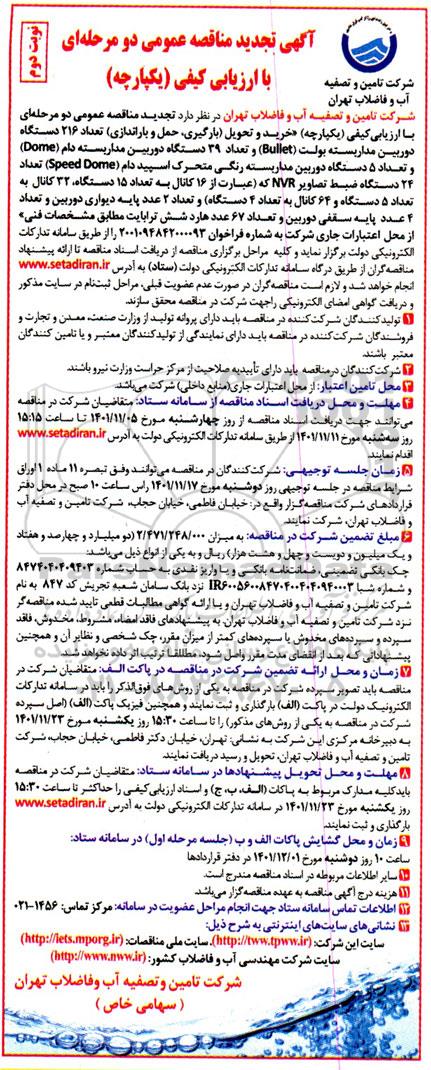 نوبت دوم
آگهی تجدید مناقصه عمومی دو مرحله‌ای
با ارزیابی کیفی (یکپارچه)
شرکت تامین و تصفیه
آب و فاضلاب تهران
شرکت تامین و تصفیه آب و فاضلاب تهران در نظر دارد تجدید مناقصه عمومی دو مرحله‌ای
با ارزیابی کیفی (یکپارچه) «خرید و تحویل (بارگیری، حمل و باراندازی) تعداد ۲۱۶ دستگاه
دوربین مداربسته بولت (Bullet) و تعداد ۳۹ دستگاه دوربین مداربسته دام (Dome)
و تعداد ۵ دستگاه دوربین مداربسته رنگی متحرک اسپید دام (Speed Dome) تعداد
۲۴ دستگاه ضبط تصاویر NVR که (عبارت از ۱۶ کانال به تعداد ۱۵ دستگاه، ۳۲ کانال به
تعداد ۵ دستگاه و ۶۴ کانال به تعداد ۴ دستگاه) و تعداد ۲ عدد پایه دیواری دوربین و تعداد
۴ عدد پایه سقفی دوربین و تعداد ۶۷ عدد هارد شش ترابایت مطابق مشخصات فنی»
از محل اعتبارات جاری شرکت به شماره فراخوان ۲۰۰۱۰۹۴۸۴۲۰۰۰۰۹۳ را از طریق سامانه تدارکات
الکترونیکی دولت برگزار نماید و کلیه مراحل برگزاری مناقصه از دریافت اسناد مناقصه تا ارائه پیشنهاد
مناقصه‌گران از طریق درگاه سامانه تدارکات الکترونیکی دولت (ستاد) به آدرس www.setadiran.ir
انجام خواهد شد و لازم است مناقصه‌گران در صورت عدم عضویت قبلی، مراحل ثبت‌نام در سایت مذکور
و دریافت گواهی امضای الکترونیکی راجهت شرکت در مناقصه محقق سازند.
۱ تولیدکنندگان شرکت‌کننده در مناقصه باید دارای پروانه تولید از وزارت صنعت، معدن و تجارت و
فروشندگان شرکت‌کننده در مناقصه باید دارای نمایندگی از تولیدکنندگان معتبر و یا تامین کنندگان
معتبر باشند.
۲ شرکت‌کنندگان درمناقصه باید دارای تأییدیه صلاحیت از مرکز حراست وزارت نیرو باشند.
۳ محل تامین اعتبار: از محل اعتبارات جاری (منابع داخلی) شرکت می‌باشد.
۴ مهلت و محل دریافت اسناد مناقصه از سامانه ستاد: متقاضیان شرکت در مناقصه
می‌توانند جهت دریافت اسناد مناقصه از روز چهارشنبه مورخ ۱۴۰۱/۱۱/۰۵ تا ساعت ۱۵:۱۵
روز سه‌شنبه مورخ ۱۴۰۱/۱۱/۱۱ از طریق سامانه تدارکات الکترونیکی دولت به آدرس www.setadiran.ir
اقدام نمایند.
۵ زمان جلسه توجیهی: شرکت‌کنندگان در مناقصه می‌توانند وفق تبصره ۱۱ ماده ۱ اوراق
شرایط مناقصه در جلسه توجیهی روز دوشنبه مورخ ۱۴۰۱/۱۱/۱۷ راس ساعت ۱۰ صبح در محل دفتر
قراردادهای شرکت مناقصه‌گزار واقع در: خیابان فاطمی، خیابان حجاب، شرکت تامین و تصفیه آب
و فاضلاب تهران، شرکت نمایند.
۶ مبلغ تضمین شرکت در مناقصه: به میزان ۲/۴۷۱/۲۴۸/۰۰۰ (دو میلیارد و چهارصد و هفتاد
و یک میلیون و دویست و چهل و هشت هزار) ریال و به یکی از انواع ذیل می‌باشد:
چک بانکی تضمینی، ضمانت‌نامه بانکی و یا واریز نقدی به حساب شماره ۸۴۷۴۰۴۰۴۰۹۴۰۳
و شماره شبا نزد بانک سامان شعبه تجریش کد ۸۴۷ به نام
شرکت تامین و تصفیه آب و فاضلاب تهران و یا ارائه گواهی مطالبات قطعی تایید شده مناقصه‌گر
نزد شرکت تامین و تصفیه آب و فاضلاب تهران به پیشنهادهای فاقد امضاء، مشروط، مخدوش، فاقد
سپرده و سپرده‌های مخدوش یا سپرده‌های کمتر از میزان مقرر، چک شخصی و نظایر آن و همچنین
پیشنهاداتی که بعد از انقضای مدت مقرر واصل شود، مطلقاً ترتیب اثر داده نخواهد شد.
۷ زمان و محل ارائه تضمین شرکت در مناقصه در پاکت الف: متقاضیان شرکت در
مناقصه باید تصویر سپرده شرکت در مناقصه به یکی از روش‌های فوق‌الذکر را باید در سامانه تدارکات
الکترونیک دولت در پاکت (الف) بارگذاری و ثبت نمایند و همچنین فیزیک پاکت (الف) (اصل سپرده
شرکت در مناقصه به یکی از روش‌های مذکور) را تا ساعت ۱۵:۳۰ روز یکشنبه مورخ ۱۴۰۱/۱۱/۲۳
به دبیرخانه مرکزی این شرکت به نشانی: تهران، خیابان دکتر فاطمی، خیابان حجاب، شرکت
تامین و تصفیه آب و فاضلاب تهران، تحویل و رسید دریافت نمایند.
۸ مهلت و محل تحویل پیشنهادها در سامانه ستاد: متقاضیان شرکت در مناقصه
بایدکلیه مدارک مربوط به پاکات (الف، ب، ج) و اسناد ارزیابی‌کیفی را حداکثر تا ساعت ۱۵:۳۰
روز یکشنبه مورخ ۱۴۰۱/۱۱/۲۳ در سامانه تدارکات الکترونیکی دولت به آدرس www.setadiran.ir
بارگذاری و ثبت نمایند.
۹ زمان و محل گشایش پاکات الف و ب (جلسه مرحله اول) در سامانه ستاد:
ساعت ۱۰ روز دوشنبه مورخ ۱۴۰۱/۱۲/۰۱ در دفتر قراردادها
۱۰ سایر اطلاعات مربوطه در اسناد مناقصه مندرج است.
۱۱ هزینه درج آگهی مناقصه به عهده مناقصه‌گزار می‌باشد.
۱۲ اطلاعات تماس سامانه ستاد جهت انجام مراحل عضویت در سامانه: مرکز تماس: ۱۴۵۶-۰۲۱
۱۳ نشانی‌های سایت‌های اینترنتی به شرح ذیل:
سایت این شرکت: (http://tww.tpww.ir)، سایت ملی مناقصات: (http://iets.mporg.ir)
سایت شرکت مهندسی آب و فاضلاب کشور: (http://www.nww.ir)
شرکت تامین وتصفیه آب وفاضلاب تهران
( سهامی خاص )